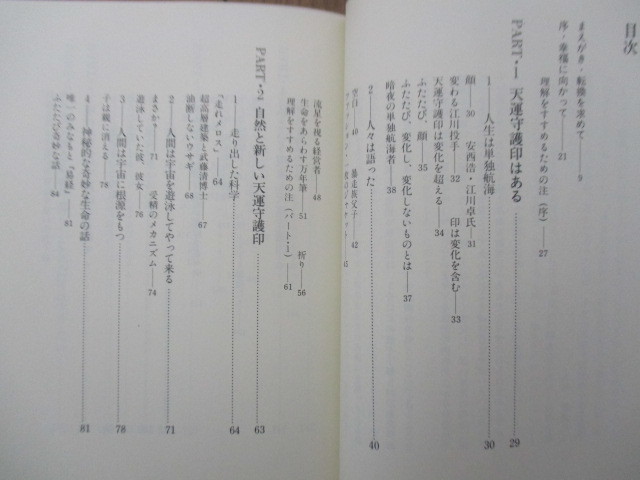 目次
まえがき・転換を求めて——9
序・幸福に向かって——21
理解をすすめるための注(序)——27
PART・1 天運守護印はある……29
1——人生は単独航海……30
顔——30 安西浩・江川卓氏——31
変わる江川投手——32 印は変化を含む——33
天運守護印は変化を超える——34
ふたたび、顔——35
ふたたび、変化し、変化しないものとは——37
暗夜の単独航海者——38
2——人々は語った……40
空白——40 暴走族父子——42
流星を視る経営者——48
生命をあらわす万年筆——51 祈り——56
理解をすすめるための注(パート・1)——61
PART・2 自然と新しい天運守護印……63
1——走り出した科学……64
「走れメロス」——64
超高層建築と武藤清博士——67
油断しないウサギ——68
2——人間は宇宙を遊泳してやって来る……71
まさか——71 受精のメカニズム——74
遊泳していた彼、彼女——76
3——人間は宇宙に根源をもつ……78
子は親に消える——78
4——神秘的な奇妙な生命の話……81
唯一のみなもと『易経』——81
ふたたび奇妙な話——84